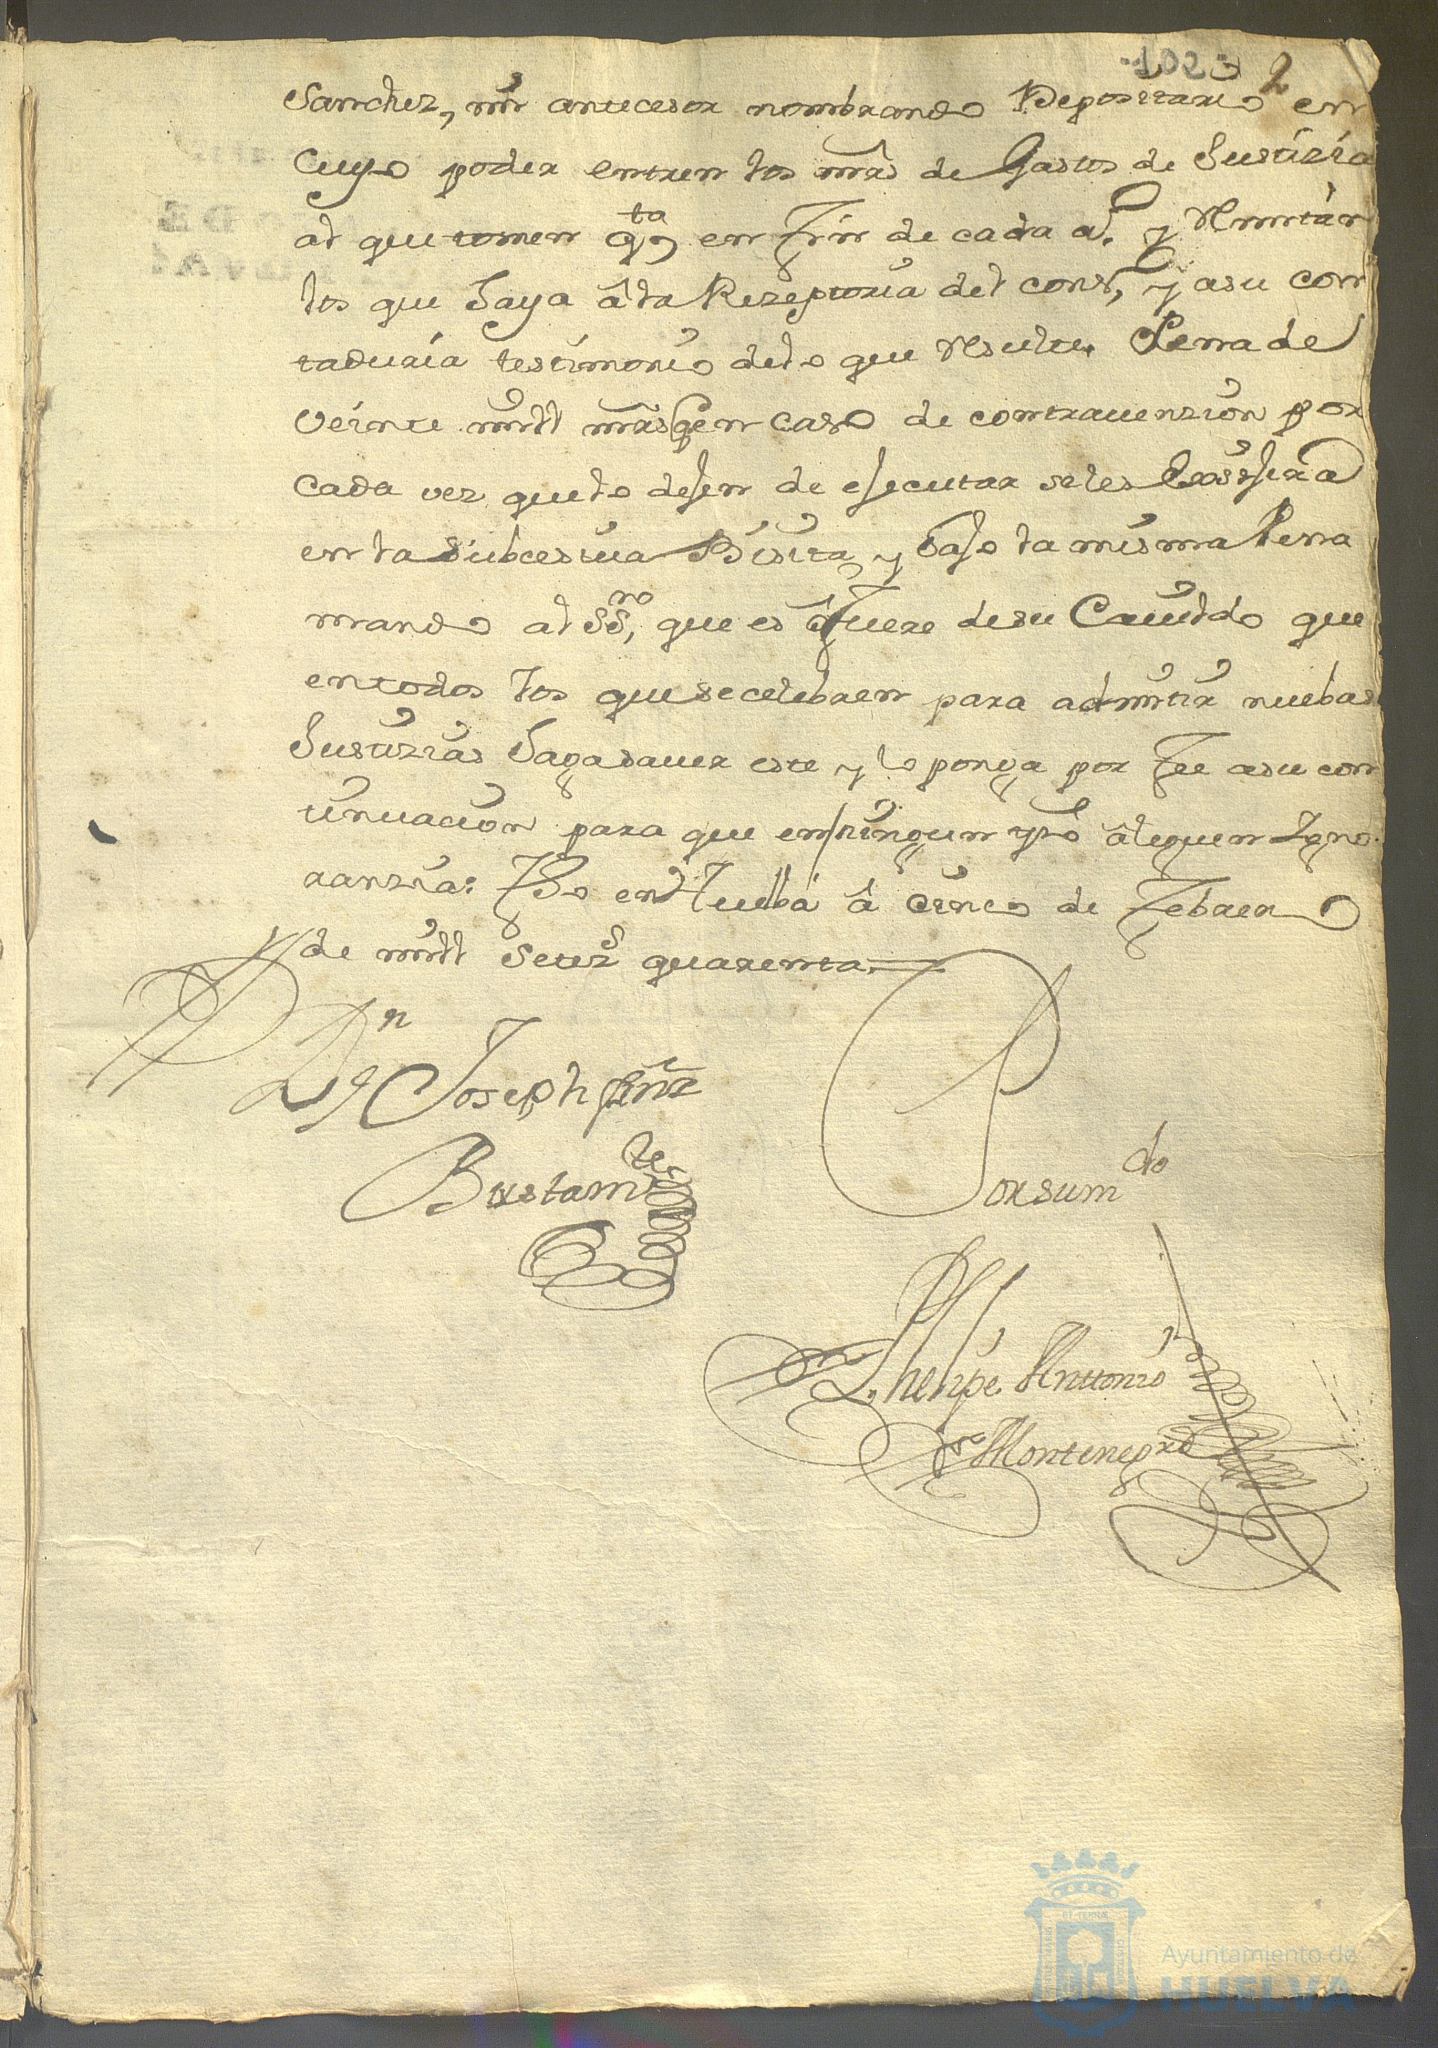 102 2
Sanchez, mi antecesor nombrando Depositario en
Cuyo poder entren los mrs de Gastos de Justizia
al que tomen qta en Fin de cada a. y Rmitan
los que haya â la Rezeptoria del cons, y a su con
taduria testimonio de lo que Rsulte. Pena de
veinte mill mrs q en caso de contravenzion por
cada vez que lo dejen de ejecutar se les
en la subcesiua Bisita, y bajo la misma Pena
mando al SSno, que es ô Fuere de su Cauildo que
en todos los que se celebren para admitir nuebas
Justizias haga sauer este y lo ponga por Fee a su con
tinuacion para que en ningun tpo âleguen Igno
ranzia. Fho en Huelba â Cinco de Febrero
de mill Setezs quarenta
Dn Joseph
Bustamte
Por su mdo
Phelipe Anttonio
Montenegro
Ayuntamiento de
HUELVA